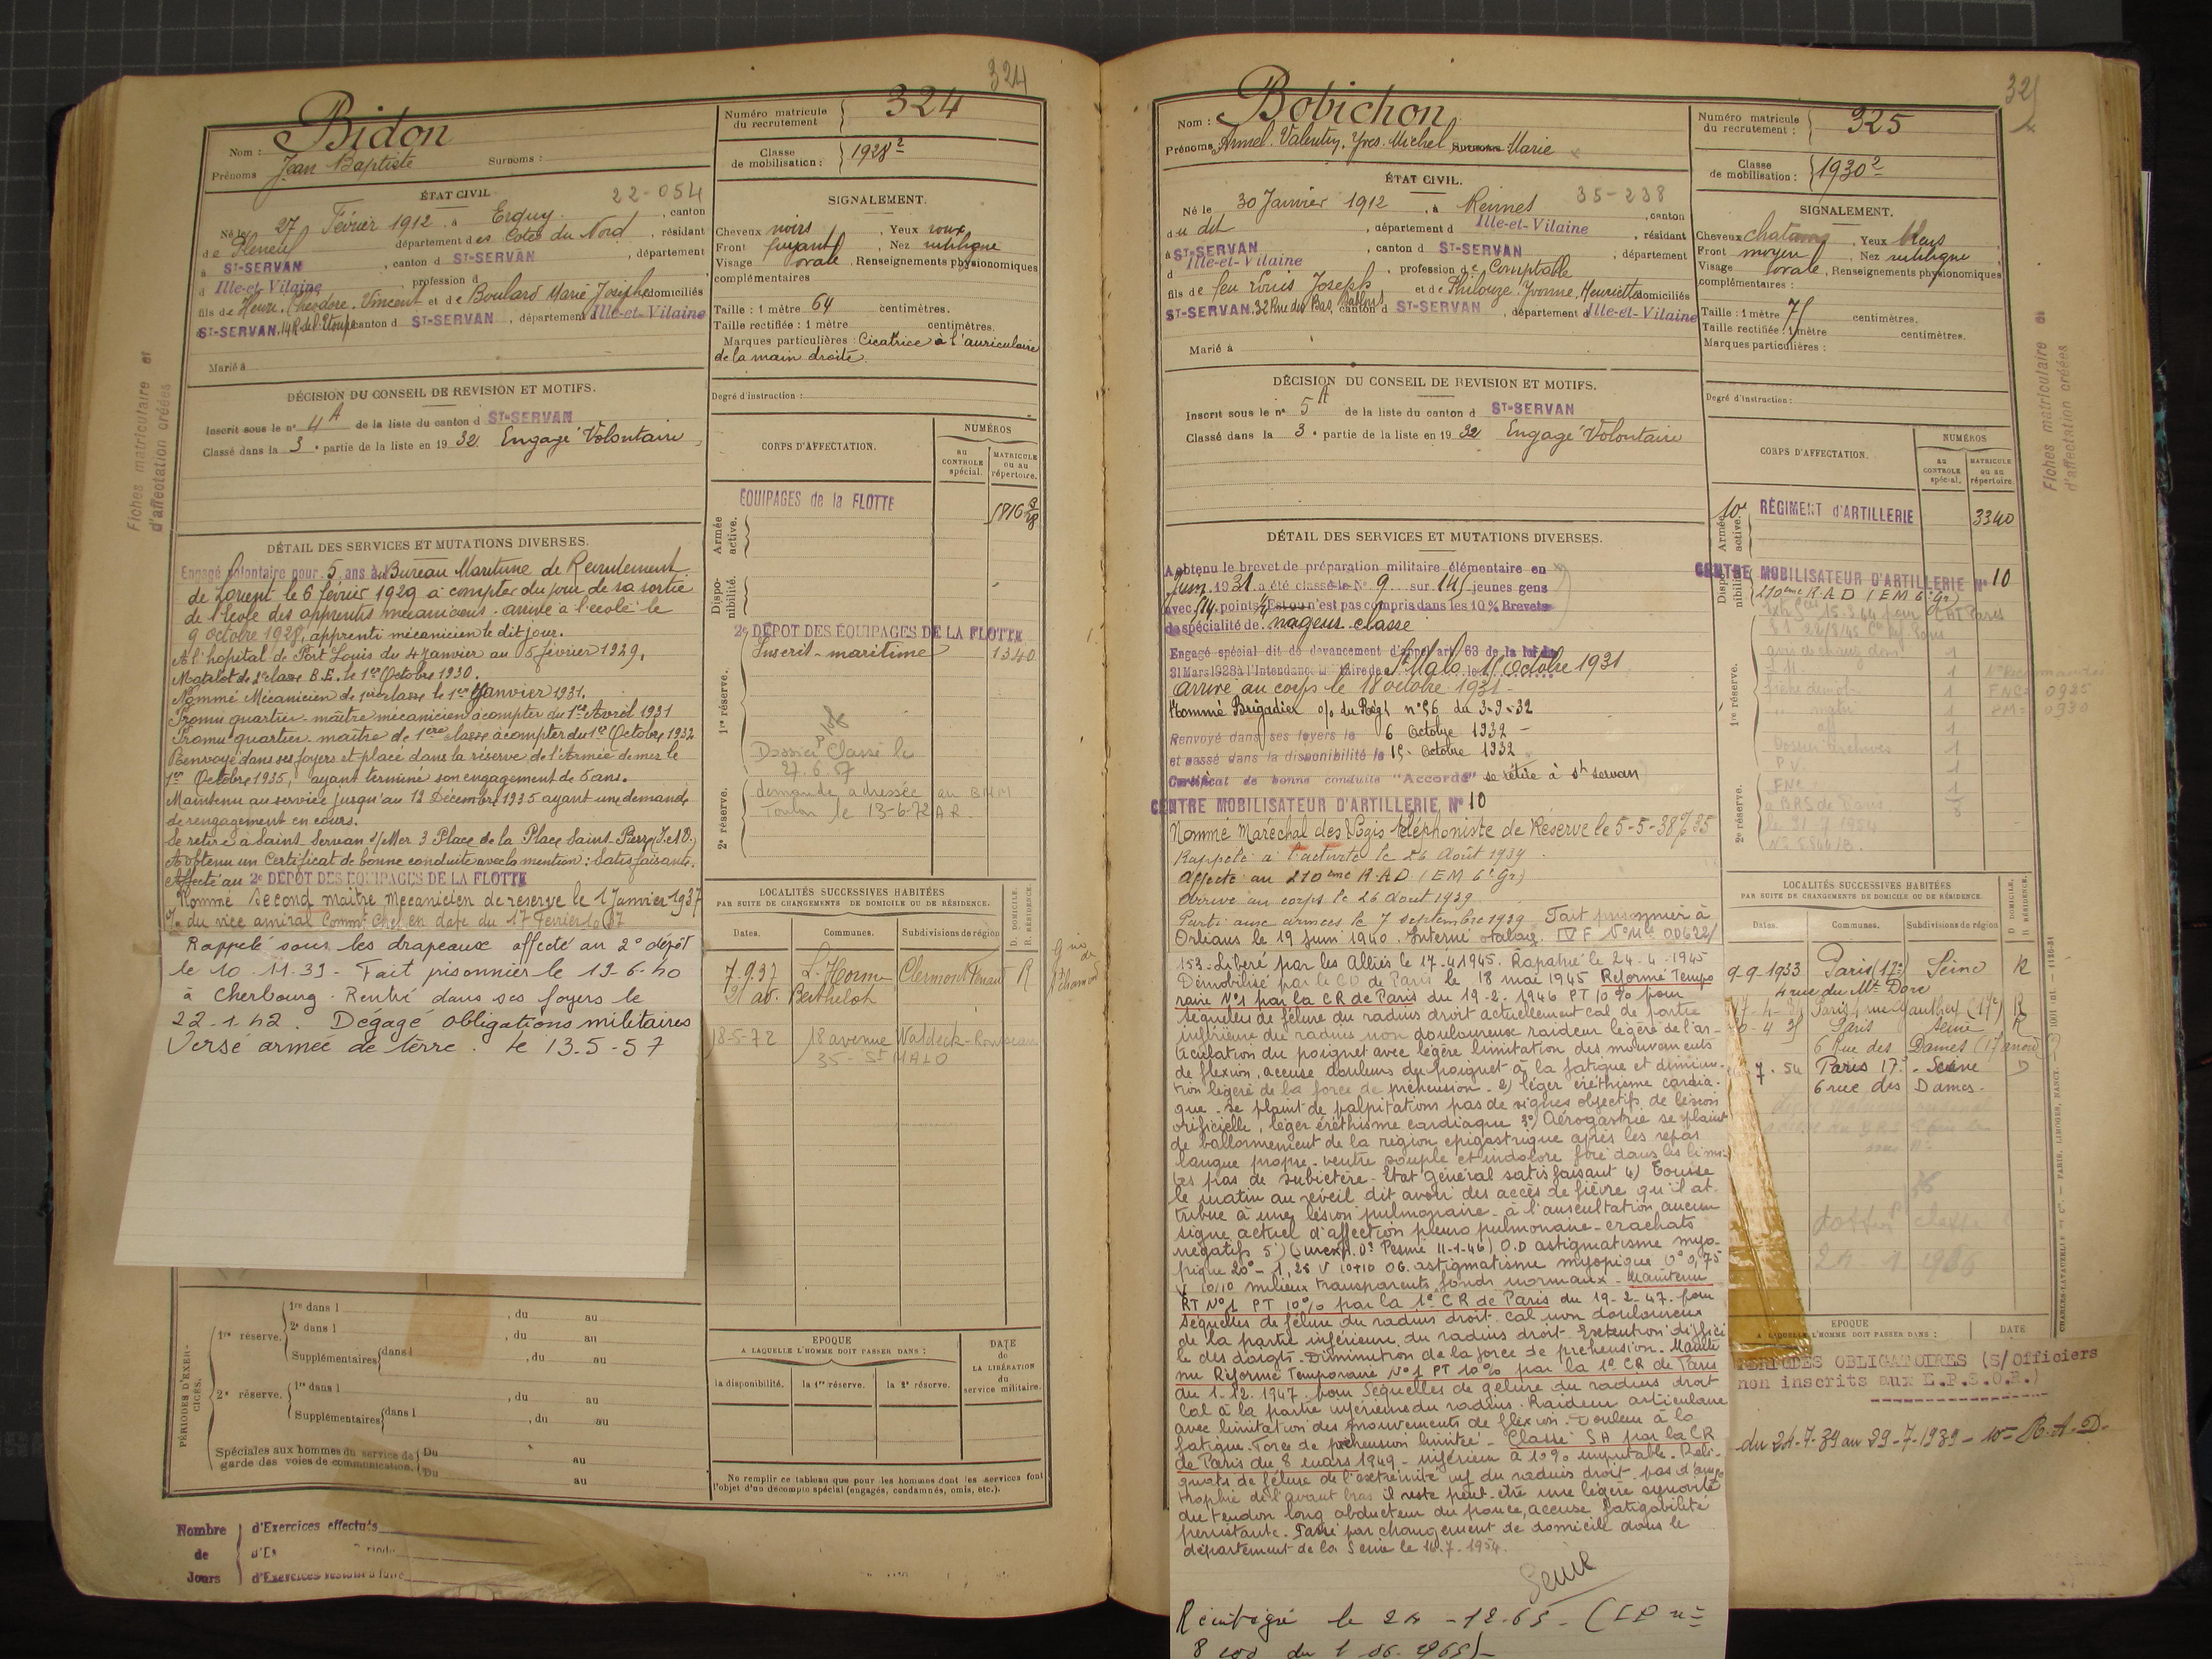 324
Bidon
Nom :
Prénoms Jean Baptiste Surnoms :
Numéro matricule du recrutement 324
Classe de mobilisation : 1928²
ÉTAT CIVIL
22-054
Né le 27 Février 1912 à Erquy, canton
de Pleneuf département des Côtes du Nord, résidant
à ST-SERVAN, canton d ST-SERVAN, département
d Ille-et-Vilaine, profession d
fils de Henri, Théodore, Vincent et de Boulard Marie Josèphe domiciliés
à ST-SERVAN, 14 R. de l'Etoupe canton d ST-SERVAN, département d Ille-et-Vilaine
Marié à
SIGNALEMENT.
Cheveux noirs, Yeux roux
Front fuyant, Nez rectiligne
Visage ovale, Renseignements physionomiques
complémentaires
Taille : 1 mètre 64 centimètres.
Taille rectifiée : 1 mètre centimètres.
Marques particulières : Cicatrice à l'auriculaire
de la main droite.
Degré d'instruction :
DÉCISION DU CONSEIL DE REVISION ET MOTIFS.
Inscrit sous le n° 4 A de la liste du canton d ST-SERVAN
Classé dans la 3e partie de la liste en 1932. Engagé Volontaire
CORPS D'AFFECTATION.
NUMÉROS
AU CONTROLE spécial.
MATRICULE ou au répertoire.
Armée active.
EQUIPAGES de la FLOTTE
Dispo-nibilité.
2e DÉPOT DES ÉQUIPAGES DE LA FLOTTE
Inscrit maritime 1340
1re réserve.
Dossier Classé le
27.6.57
2e réserve.
demande adressée au BMM
Toulon le 13-6-72 A R.
DÉTAIL DES SERVICES ET MUTATIONS DIVERSES.
Engagé volontaire pour 5 ans au Bureau Maritime de Recrutement
de Lorient le 6 février 1929 à compter du jour de sa sortie
de l'Ecole des apprentis mécaniciens. arrivé à l'école le
9 Octobre 1928, apprenti mécanicien le dit jour.
A l'hopital de Port Louis du 4 Janvier au 5 février 1929.
Matelot de 2e classe B.E. le 1er Octobre 1930.
Nommé Mécanicien de 1ere classe le 1er Janvier 1931.
Promu quartier-maître mécanicien à compter du 1er Avril 1931
Promu quartier-maître de 1ère classe à compter du 1er Octobre 1932
Renvoyé dans ses foyers et placé dans la réserve de l'Armée de mer le
1er Octobre 1935, ayant terminé son engagement de 5 ans.
Maintenu au service jusqu'au 12 Décembre 1935 ayant une demande
de rengagement en cours.
Se retire à Saint-Servan s/Mer 3 Place de la Place Saint-Pierre (I et V.)
A obtenu un Certificat de bonne conduite avec la mention : Satisfaisante.
Affecté au 2e DÉPOT DES ÉQUIPAGES DE LA FLOTTE
Nommé Second maître Mécanicien de réserve le 1 Janvier 1937
du vice amiral Commt Chef en date du 17 Février 1937
Rappelé sous les drapeaux affecté au 2° dépôt
le 10.11.39 - Fait prisonnier le 19-6-40
à Cherbourg. Rentré dans ses foyers le
22-1-42. Dégagé obligations militaires
Versé armée de terre. le 13.5-57
LOCALITÉS SUCCESSIVES HABITÉES
PAR SUITE DE CHANGEMENTS DE DOMICILE OU DE RÉSIDENCE.
Dates. Communes. Subdivisions de région D. DOMICILE. R. RÉSIDENCE.
7.9.37 L. Horme Clermont Ferrand R
21 av. Berthelot
18-5-72 18 avenue Waldeck-Rousseau
35- St MALO
PÉRIODES D'EXERCICES.
1re réserve. 1re dans l, du au
2e dans l, du au
Supplémentaires dans l, du au
2e réserve. 1re dans l, du au
Supplémentaires dans l, du au
Spéciales aux hommes du service de garde des voies de communication. Du au
Du au
EPOQUE
A LAQUELLE L'HOMME DOIT PASSER DANS :
DATE de LA LIBÉRATION du service militaire.
la disponibilité. la 1re réserve. la 2e réserve.
Ne remplir ce tableau que pour les hommes dont les services font
l'objet d'un décompte spécial (engagés, condamnés, omis, etc.).
Nombre de Jours
d'Exercices effectués
Fiches matriculaire et
d'affectation créées
325
Nom : Bobichon
Prénoms Armel, Valentin, Yves, Michel Surnoms Marie
Numéro matricule du recrutement : 325
Classe de mobilisation : 1930²
ÉTAT CIVIL.
35-238
Né le 30 Janvier 1912, à Rennes, canton
du dit, département d Ille-et-Vilaine, résidant
à ST-SERVAN, canton d ST-SERVAN, département
d Ille-et-Vilaine, profession de Comptable
fils de feu Louis Joseph et de Philouze Yvonne, Henriette domiciliés
ST-SERVAN. 32 Rue des Bas Sablons, canton d ST-SERVAN, département d Ille-et-Vilaine
Marié à
SIGNALEMENT.
Cheveux chatains, Yeux bleus
Front moyen, Nez rectiligne
Visage ovale, Renseignements physionomiques
complémentaires :
Taille : 1 mètre 75 centimètres.
Taille rectifiée : 1 mètre centimètres.
Marques particulières :
Degré d'instruction :
DÉCISION DU CONSEIL DE REVISION ET MOTIFS.
Inscrit sous le n° 5 A de la liste du canton d ST-SERVAN
Classé dans la 3e partie de la liste en 1932 Engagé Volontaire
CORPS D'AFFECTATION.
NUMÉROS
AU CONTROLE spécial.
MATRICULE ou au répertoire.
Armée active.
10e RÉGIMENT d'ARTILLERIE 3340
CENTRE MOBILISATEUR D'ARTILLERIE N° 10
210ème R.A.D (EM 6e Gr)
1re réserve.
Dossier archives 1
P.V. 1
2e réserve.
à BRS de Paris
DÉTAIL DES SERVICES ET MUTATIONS DIVERSES.
A obtenu le brevet de préparation militaire élémentaire en
Juin 1931 a été classé le N° 9 sur 145 jeunes gens
avec points. Est ou n'est pas compris dans les 10 % Brevets
de spécialité de nageur classe
Engagé spécial dit de devancement d'appel art. 63 de la loi du
31 Mars 1928 à l'Intendance militaire de St Malo le 15 Octobre 1931
Arrivé au corps le 18 octobre 1931-
Nommé Brigadier o/ du Régt n°96 du 3-9-32
Renvoyé dans ses foyers le 6 Octobre 1932 -
et passé dans la disponibilité le 15 Octobre 1932
Certificat de bonne conduite "Accordé" se retire à St Servan
CENTRE MOBILISATEUR D'ARTILLERIE N° 10
Nommé Maréchal des Logis téléphoniste de Réserve le 5-5-38
Rappelé à l'activité le 26 Août 1939.
Affecté au 210ème R.A.D (EM 6e Gr)
Arrivé au corps le 26 aout 1939
Parti aux armées le 7 septembre 1939 Fait prisonnier à
Orléans le 19 Juin 1940. Interné stalag IV F
153. Libéré par les Alliés le 17-4 1945. Rapatrié le 24-4-1945
Démobilisé par le CD de Paris le 18 mai 1945 Réformé Tempo
raire N°1 par la CR de Paris du 19-2-1946 PT 10% pour
séquelles de fêlure du radius droit actuellement cal de partie
inférieure du radius non douloureux raideur légère de l'ar-
ticulation du poignet avec légère limitation des mouvements
de flexion, accuse douleurs du poignet à la fatigue et diminu-
tion légère de la force de préhension. 2) léger éréthisme cardia-
que. Se plaint de palpitations pas de signes objectifs de lésion
orificielle, léger éréthisme cardiaque 3°) Aérogastrie se plaint
de ballonnement de la région épigastrique après les repas
langue propre. ventre souple et indolore foie dans les limi-
tes pas de subictère. Etat général satisfaisant 4) Tousse
le matin au réveil dit avoir des accès de fièvre qu'il at-
tribue à une lésion pulmonaire. à l'auscultation aucun
signe actuel d'affection pleuro pulmonaire. crachats
négatifs 5°) (surexp. Dr Pesme 11-1-46) O.D astigmatisme myo-
pique 20° - 1,25 V 10/10 OG. astigmatisme myopique 0° 0,75
V 10/10 milieux transparents fonds normaux. Maintenu
RT N°1 PT 10% par la 1e CR de Paris du 19-2-47. pour
séquelles de fêlure du radius droit. cal non douloureux
de la partie inférieure du radius droit. Extension diffici
le des doigts. Diminution de la force de préhension. Mainte
nu Réformé Temporaire N°1 PT 10% par la 1e CR de Paris
du 1-12-1947. pour Séquelles de fêlure du radius droit
Cal à la partie inférieure du radius. Raideur articulaire
avec limitation des mouvements de flexion. Douleur à la
fatigue. Force de préhension limitée. Classé SA par la CR
de Paris du 8 mars 1949. inférieur à 10% imputable. Reli-
quats de fêlure de l'extrémité inf du radius droit. pas d'amyo
trophie de l'avant bras il reste peut-être une légère synovite
du tendon long abducteur du pouce, accuse fatigabilité
persistante. Passé par changement de domicile dans le
département de la Seine le 16.7.1954.
Seine
Réintégré le 24-12-65
LOCALITÉS SUCCESSIVES HABITÉES
PAR SUITE DE CHANGEMENTS DE DOMICILE OU DE RÉSIDENCE.
Dates. Communes. Subdivisions de région D DOMICILE. R RÉSIDENCE.
9-9-1933 Paris (17e) Seine R
4 rue du Mt Dore
Paris, rue Gauthey (17e) R
Paris Seine R
6 Rue des Dames (17e arrond)
7.54 Paris 17e - Seine D
6 rue des Dames.
EPOQUE
A LAQUELLE L'HOMME DOIT PASSER DANS :
DATE
PERIODES OBLIGATOIRES (S/Officiers
non inscrits aux E.P.S.O.R.)
du 24-7-39 au 29-7-1939 - 10e R.A.D.
Fiches matriculaire et
d'affectation créées
CHARLES-LAVAUZELLE ET Cie — PARIS, LIMOGES, NANCY.